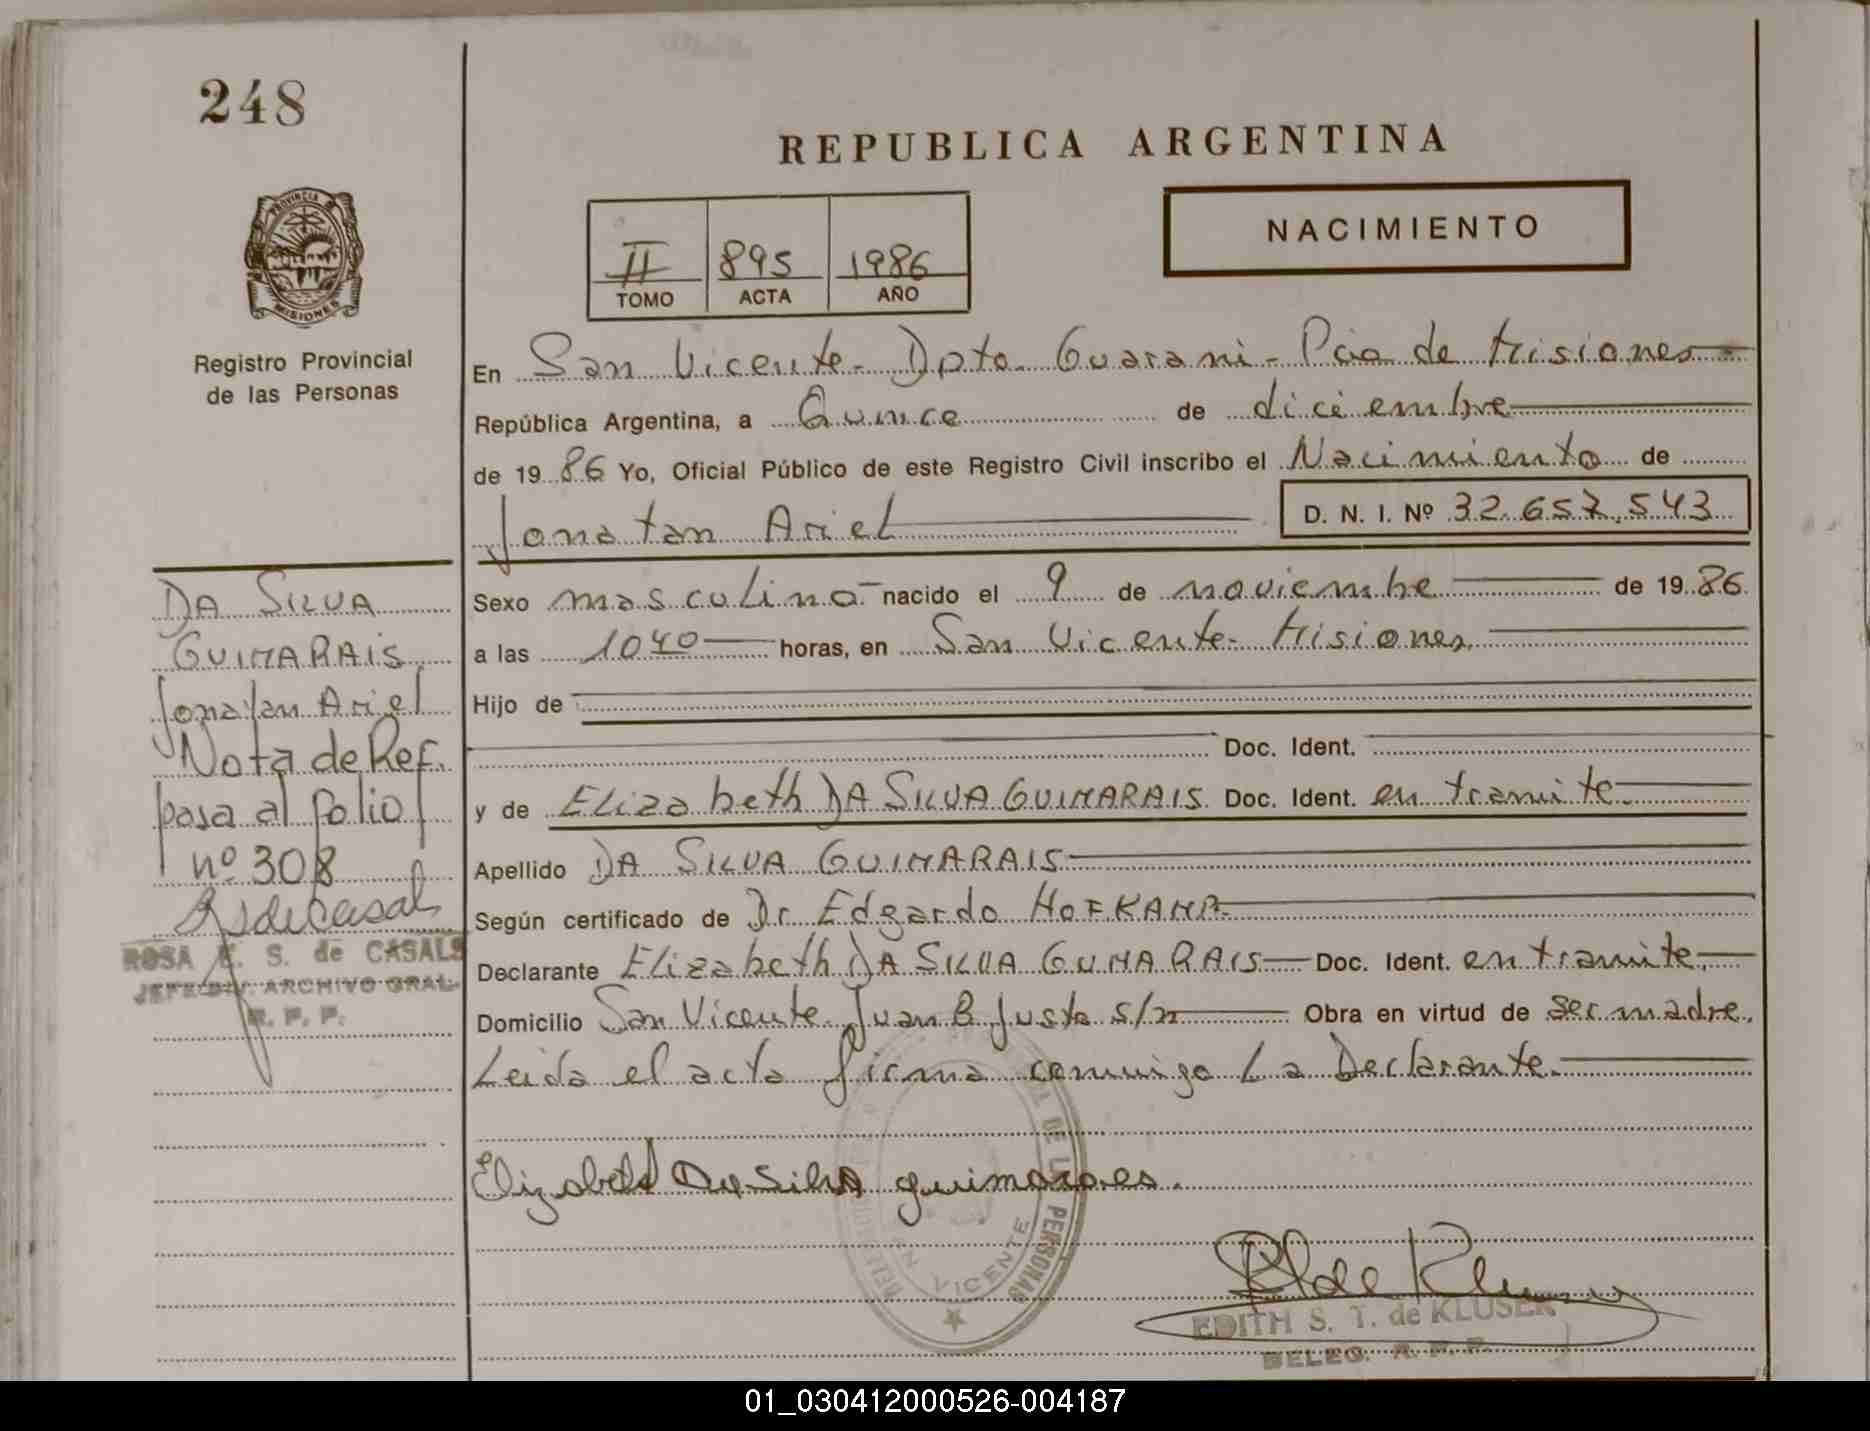 248
REPUBLICA ARGENTINA
PROVINCIA DE
MISIONES
Registro Provincial
de las Personas
II 895 1986
TOMO ACTA AÑO
NACIMIENTO
En San Vicente - Dpto. Guarani - Pcia de Misiones
República Argentina, a Quince de diciembre
de 1986 Yo, Oficial Público de este Registro Civil inscribo el Nacimiento de
Jonatan Ariel D. N. I. Nº 32.657.543
Sexo masculino nacido el 9 de noviembre de 1986
a las 1040 horas, en San Vicente - Misiones
Hijo de
Doc. Ident.
y de Elizabeth DA SILVA GUIMARAIS Doc. Ident. en tramite.
Apellido DA SILVA GUIMARAIS
Según certificado de Dr Edgardo HOFKAMP
Declarante Elizabeth DA SILVA GUIMARAIS Doc. Ident. en tramite.
Domicilio San Vicente Juan B Justo s/n Obra en virtud de ser madre.
Leida el acta firma conmigo La Declarante.
Elizabeth Da Silva guimaraes.
DE LAS PERSONAS
SAN VICENTE
EDITH S. T. de KLUSER
DELEG. R. P. P.
DA SILVA
GUIMARAIS,
Jonatan Ariel
Nota de Ref.
pasa al folio
nº 308
ROSA E. S. de CASALS
JEFE DIV. ARCHIVO GRAL.
R. P. P.
01_030412000526-004187